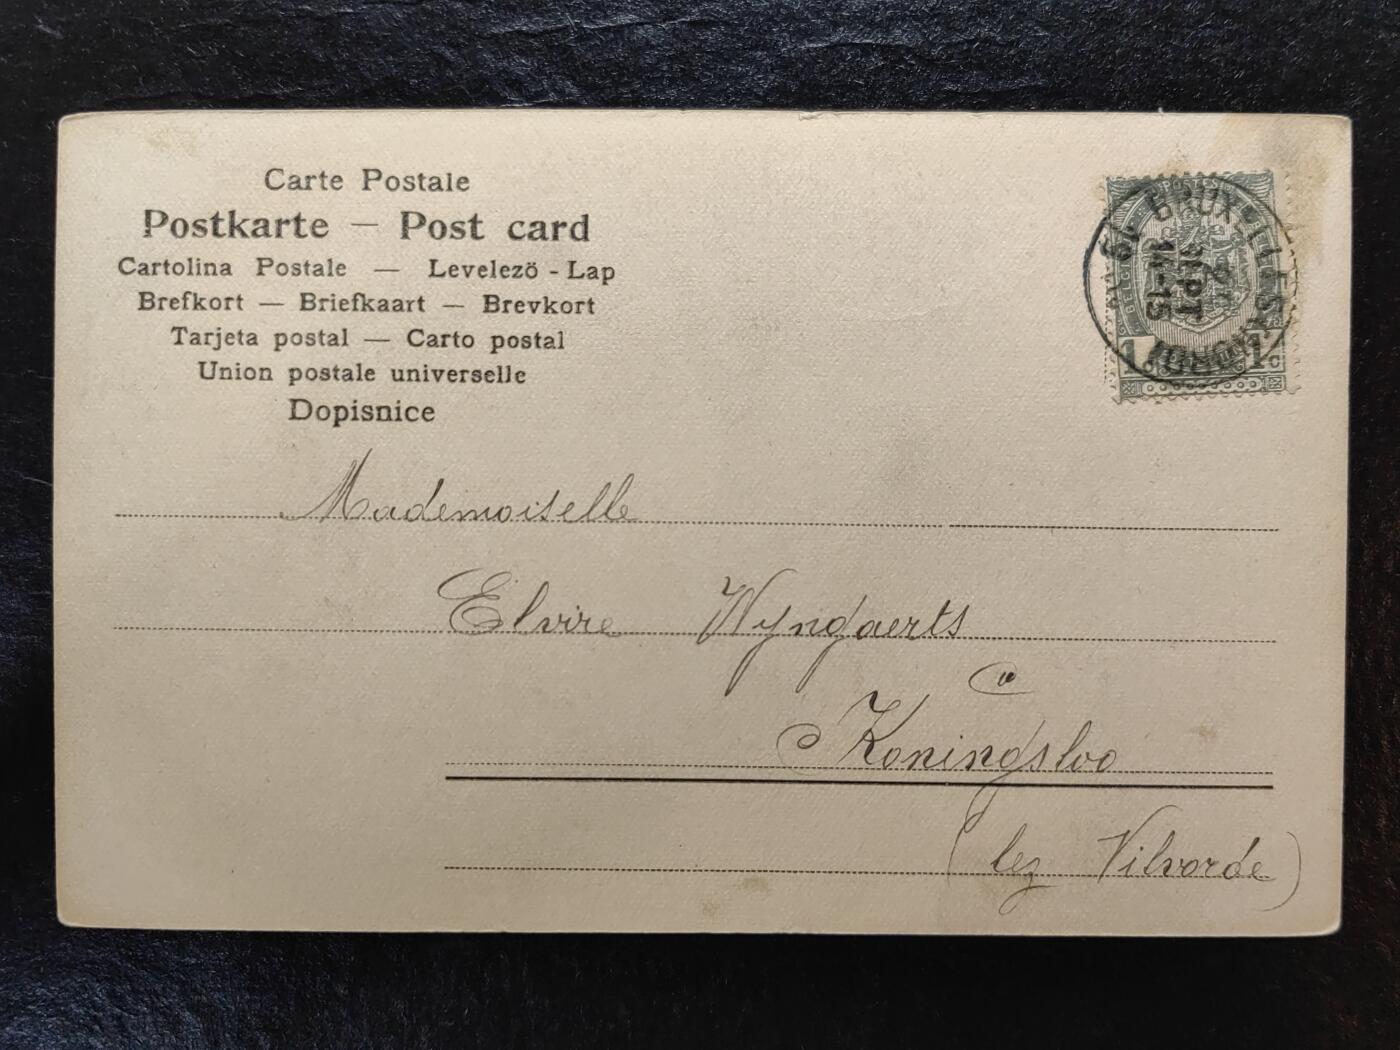 Carte Postale
Postkarte — Post card
Cartolina Postale — Levelező - Lap
Brefkort — Briefkaart — Brevkort
Tarjeta postal — Carto postal
Union postale universelle
Dopisnice
BRUXELLES
SEPT
14-15
1c 1c
Mademoiselle
Elvire Wyngaerts
à
Koningsloo
(lez Vilvorde)